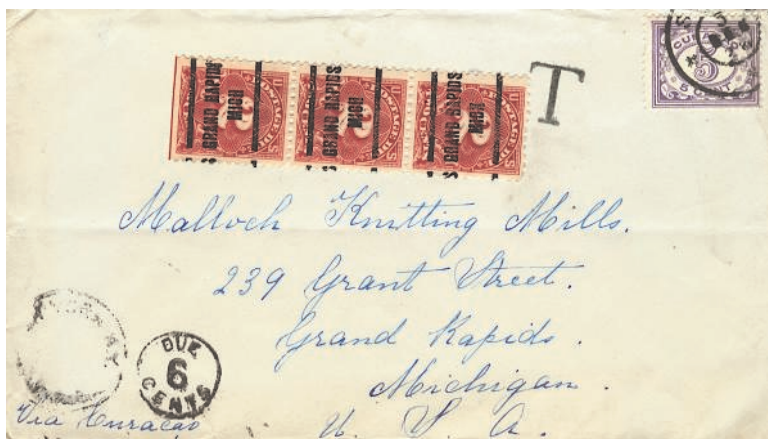 GRAND RAPIDS
MICH
GRAND RAPIDS
MICH
GRAND RAPIDS
MICH
T
5
5 CENT
Malloch Knitting Mills.
239 Grant Street.
Grand Rapids.
Michigan.
U. S. A.
DUE
6
CENTS
Via Curaçao